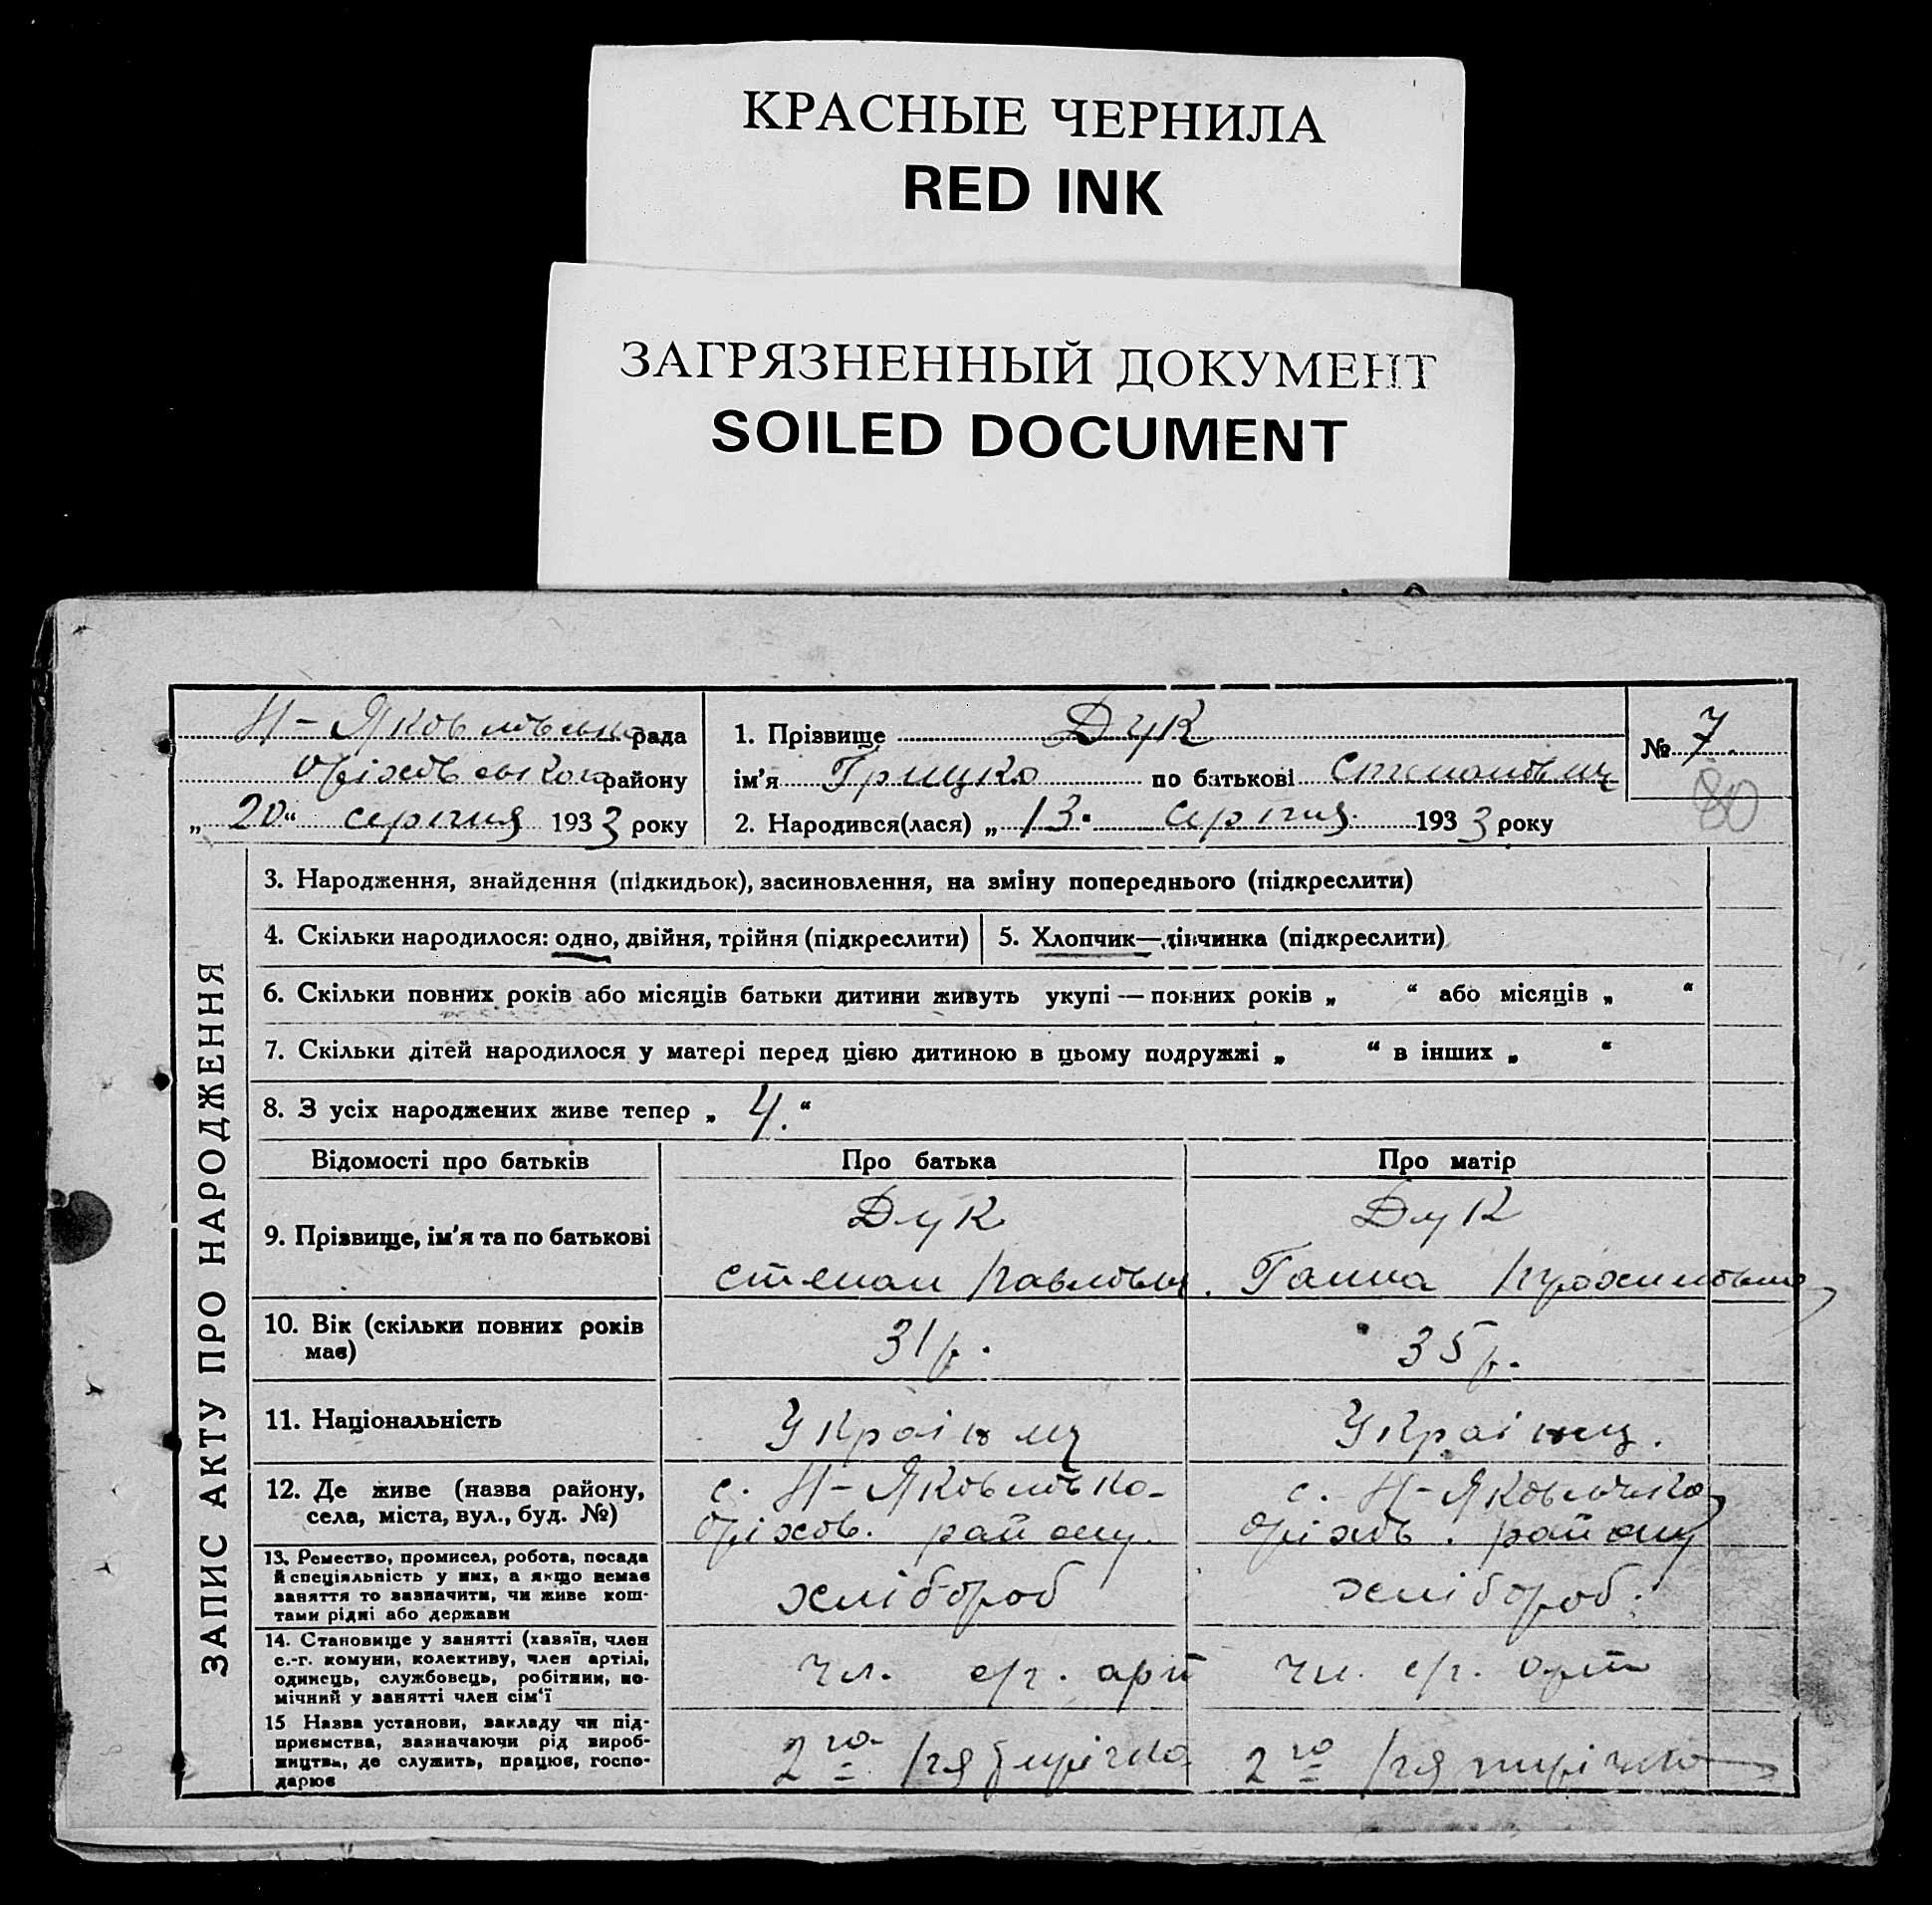 КРАСНЫЕ ЧЕРНИЛА
RED INK
ЗАГРЯЗНЕННЫЙ ДОКУМЕНТ
SOILED DOCUMENT
Н-Яковлівська рада
Оріхівського району
„20“ серпня 1933 року
1. Прізвище Дук
ім'я Грицко по батькові Степанович
2. Народився(лася) „13. серпня 1933 року
№ 7.
80
ЗАПИС АКТУ ПРО НАРОДЖЕННЯ
3. Народження, знайдення (підкидьок), засиновлення, на зміну попереднього (підкреслити)
4. Скільки народилося: одно, двійня, трійня (підкреслити) 5. Хлопчик—дівчинка (підкреслити)
6. Скільки повних років або місяців батьки дитини живуть укупі — повних років „ “ або місяців „ “
7. Скільки дітей народилося у матері перед цією дитиною в цьому подружжі „ “ в інших „ “
8. З усіх народжених живе тепер „ 4. “
Відомості про батьків Про батька Про матір
9. Прізвище, ім'я та по батькові
Дук
Степан Павлович.
Дук
Ганна
10. Вік (скільки повних років
має)
31 р.
35 р.
11. Національність
Українц
Українц.
12. Де живе (назва району,
села, міста, вул., буд. №)
с. Н-Яковлівка
Оріхов. району.
с. Н-Яковлівка
Оріхов. району
13. Ремество, промисел, робота, посада
й спеціяльність у них, а якщо немає
заняття то зазначити, чи живе кош-
тами рідні або держави
хлібороб
хлібороб.
14. Становище у занятті (хазяїн, член
с.-г. комуни, колективу, член артілі,
одинець, службовець, робітник, по-
мічний у занятті член сім'ї
чл. с/г. арт
чл. с/г. арт
15 Назва установи, закладу чи під-
приємства, зазначаючи рід вироб-
ництва, де служить, працює, госпо-
дарює
2го Пятирічка
2го Пятирічка